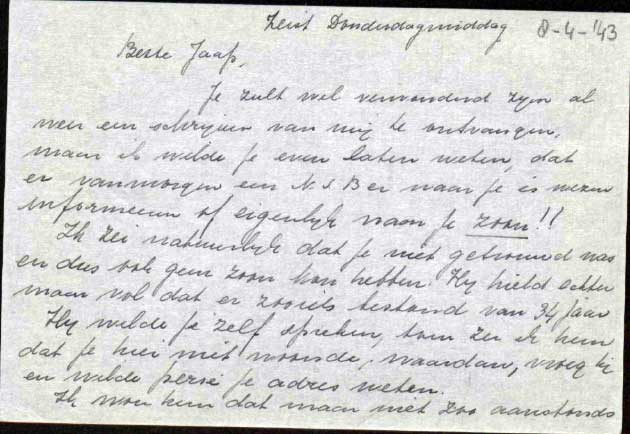 Zeist Donderdagmiddag 8-4-'43
Beste Jaap,
Je zult wel verwonderd zijn al
weer een schrijven van mij te ontvangen,
maar ik wilde je even laten weten, dat
er vanmorgen een N.S.B er naar je is wezen
informeeren of eigenlijk naar je zoon!!
Ik zei natuurlijk dat je niet getrouwd was
en dus ook geen zoon kon hebben. Hij hield echter
maar vol dat er zooiets bestond van 34 jaar
Hij wilde je zelf spreken, toen zei ik hem
dat je hier niet woonde, waar dan, vroeg hij
en wilde persé je adres weten.
Ik wou hem dat maar niet zoo aanstonds